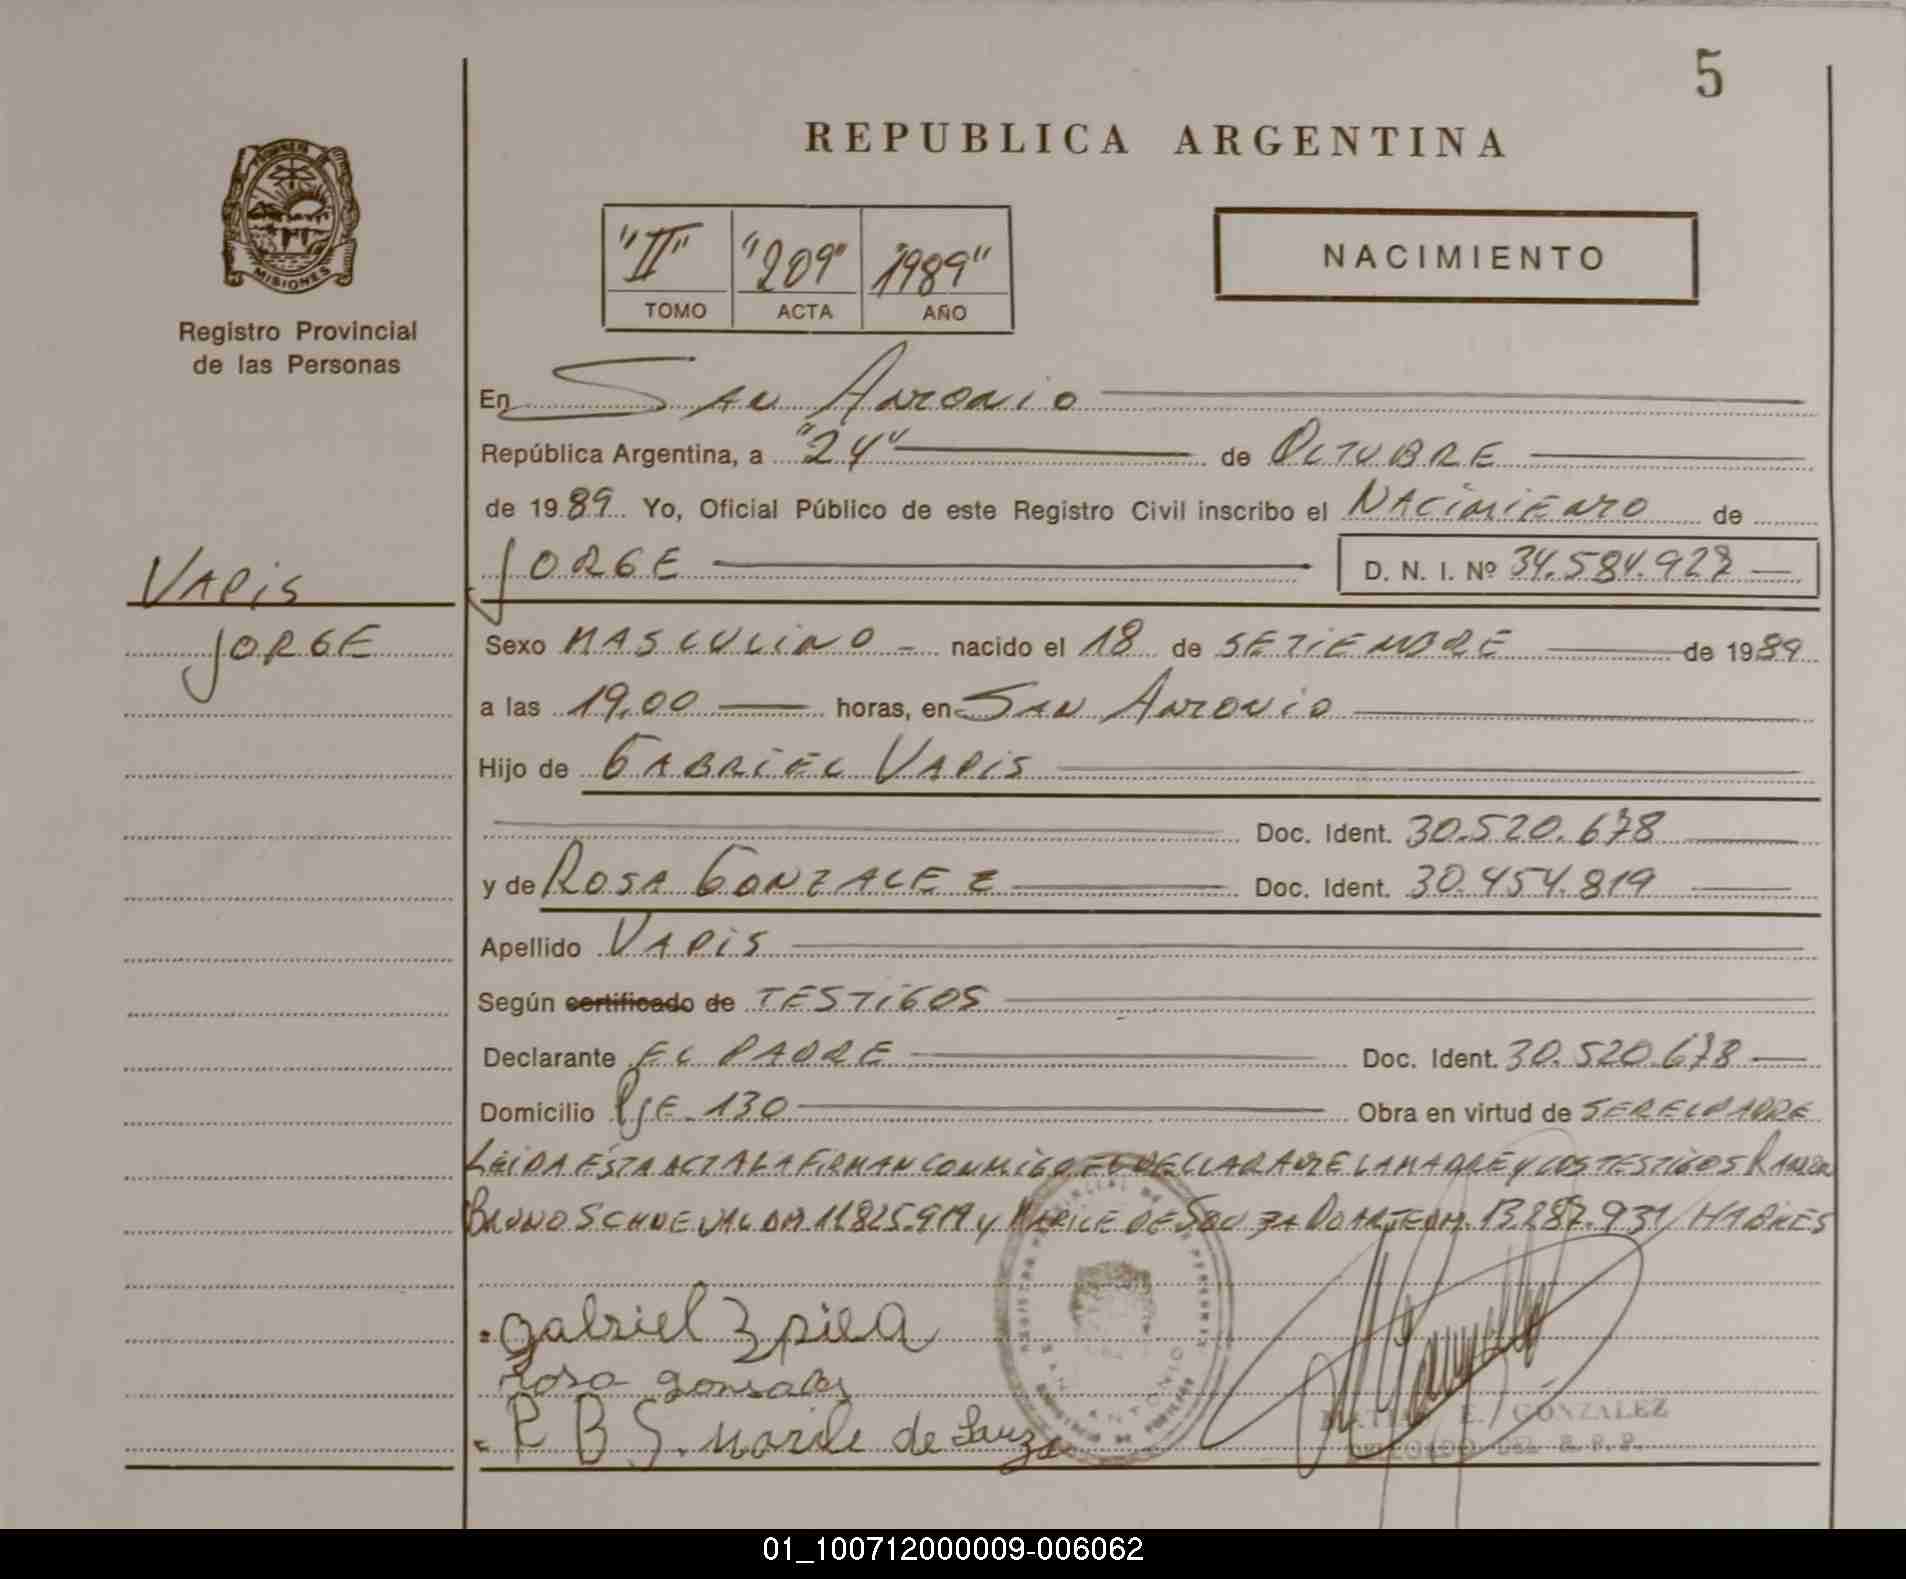 5
REPUBLICA ARGENTINA
"II" "209" "1989"
TOMO ACTA AÑO
NACIMIENTO
MISIONES
Registro Provincial
de las Personas
En San Antonio
República Argentina, a "24" de OCTUBRE
de 1989 Yo, Oficial Público de este Registro Civil inscribo el NACIMIENTO de
VAPIS
JORGE D. N. I. Nº 34.584.927
JORGE
Sexo MASCULINO - nacido el 18 de SETIEMBRE de 1989
a las 19,00 horas, en San Antonio
Hijo de GABRIEL VAPIS
Doc. Ident. 30.520.678
y de ROSA GONZALEZ Doc. Ident. 30.454.819
Apellido VAPIS
Según certificado de TESTIGOS
Declarante EL PADRE Doc. Ident. 30.520.678
Domicilio PJE 130 Obra en virtud de SER EL PADRE
LEIDA ESTA ACTA LA FIRMAN CONMIGO EL DECLARANTE LA MADRE Y LOS TESTIGOS RAMON
BRUNO SCHNEVAL DM 11.825.919 Y MARILE DE SOUZA DUARTE DM. 13.287.931/HABILES
gabriel
rosa gonsales
R B S. Marile de Sauza
SAN ANTONIO
E. GONZALEZ
DELEGADO DEL R.P.P.
01_100712000009-006062